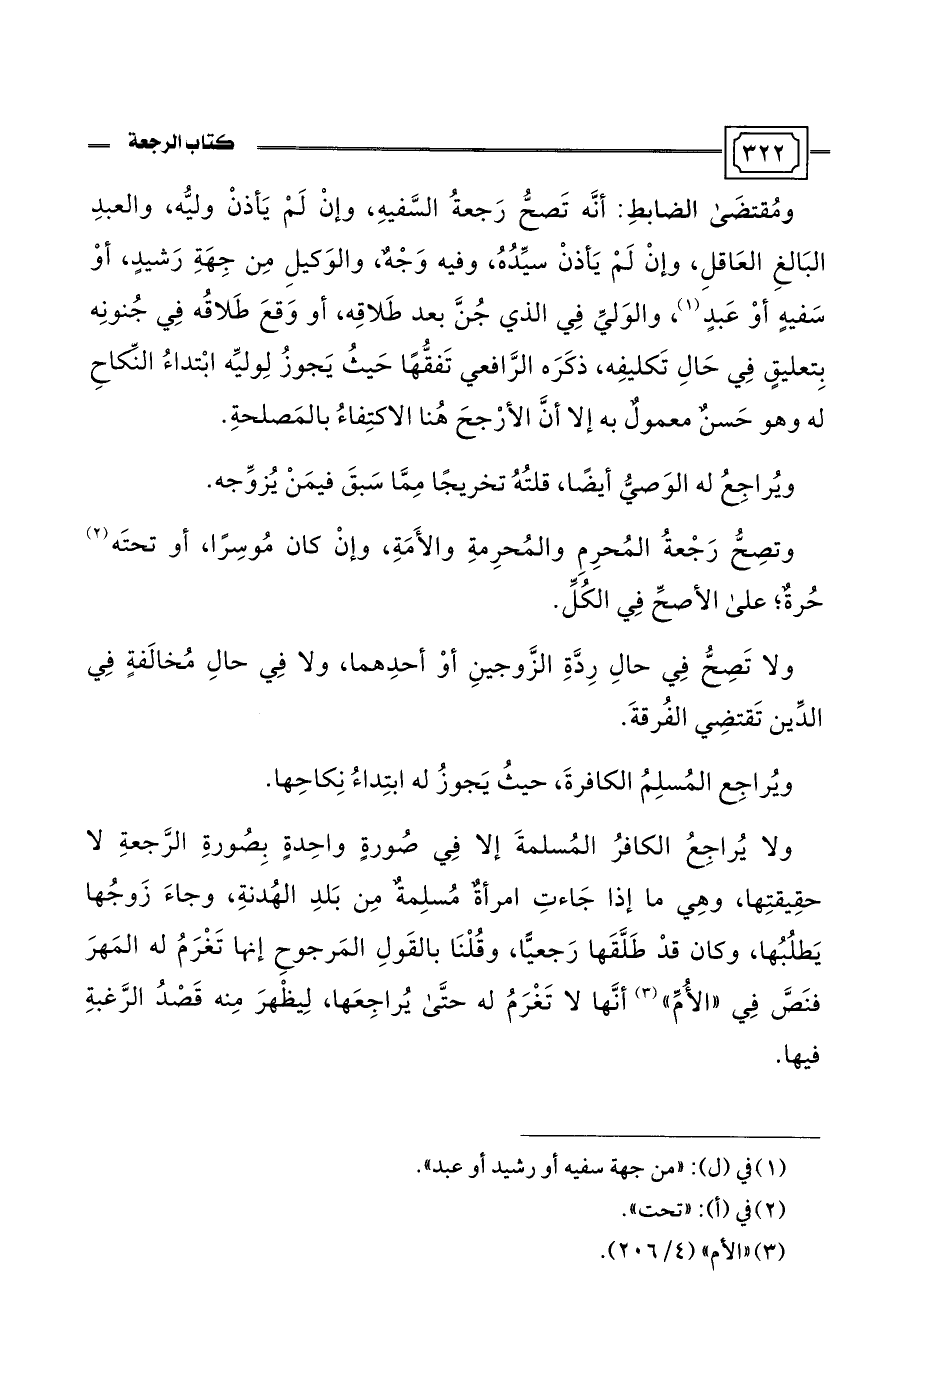 ٣٢٢ كتاب الرجعة
ومُقتضَىٰ الضابطِ: أنَّه تَصحُّ رَجعةُ السَّفيهِ، وإنْ لَمْ يَأذنْ وليُّه، والعبدِ
البَالغِ العَاقلِ، وإنْ لَمْ يَأذنْ سيِّدُهُ، وفيه وَجْهٌ، والوَكيلِ مِن جِهَةِ رَشيدٍ، أوْ
سَفيهٍ أوْ عَبدٍ(١)، والوَليِّ فِي الذي جُنَّ بعد طلَاقِه، أو وَقعَ طَلَاقُه فِي جُنونِه
بِتعليقٍ فِي حَالِ تَكليفِه، ذكَرَه الرَّافعي تَفقُّهًا حَيثُ يَجوزُ لِوليِّه ابْتداءُ النِّكاحِ
له وهو حَسنٌ معمولٌ به إلا أنَّ الأرْجحَ هُنا الاكتِفاءُ بالمَصلحةِ.
ويُراجِعُ له الوَصيُّ أيضًا، قلتُهُ تخريجًا مِمَّا سَبقَ فيمَنْ يُزوِّجه.
وتصِحُّ رَجْعةُ المُحرِمِ والمُحرِمةِ والأَمَةِ، وإنْ كان مُوسِرًا، أو تحتَه(٢)
حُرةٌ؛ علىٰ الأصحِّ فِي الكُلِّ.
ولا تَصِحُّ فِي حالِ رِدَّةِ الزَّوجينِ أوْ أحدِهما، ولا فِي حالِ مُخالَفةٍ فِي
الدِّين تَقتضِي الفُرقةَ.
ويُراجِع المُسلِمُ الكافرةَ، حيثُ يَجوزُ له ابتِداءُ نِكاحِها.
ولا يُراجِعُ الكافرُ المُسلمةَ إلا فِي صُورةٍ واحِدةٍ بِصُورةِ الرَّجعةِ لا
حقيقتِها، وهِي ما إذا جَاءتِ امرأةٌ مُسلِمةٌ مِن بَلدِ الهُدنةِ، وجاءَ زَوجُها
يَطلُبُها، وكان قدْ طَلَّقَها رَجعيًّا، وقُلْنَا بالقَولِ المَرجوحِ إنها تَغْرَمُ له المَهرَ
فنَصَّ فِي «الأُمِّ»(٣) أنَّها لا تَغْرَمُ له حتَّىٰ يُراجِعَها، لِيظْهرَ مِنه قَصْدُ الرَّغبةِ
فيها.
(١) في (ل): «من جهة سفيه أو رشيد أو عبد».
(٢) في (أ): «تحت».
(٣) «الأم» (٤/ ٢٠٦).